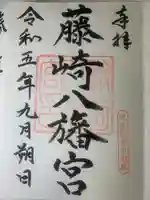 奉拝
藤崎八旛宮
令和五年九月朔日